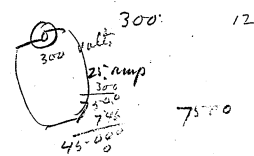 300. 12
300 volts
25 amp
300
500
7500
45000
0